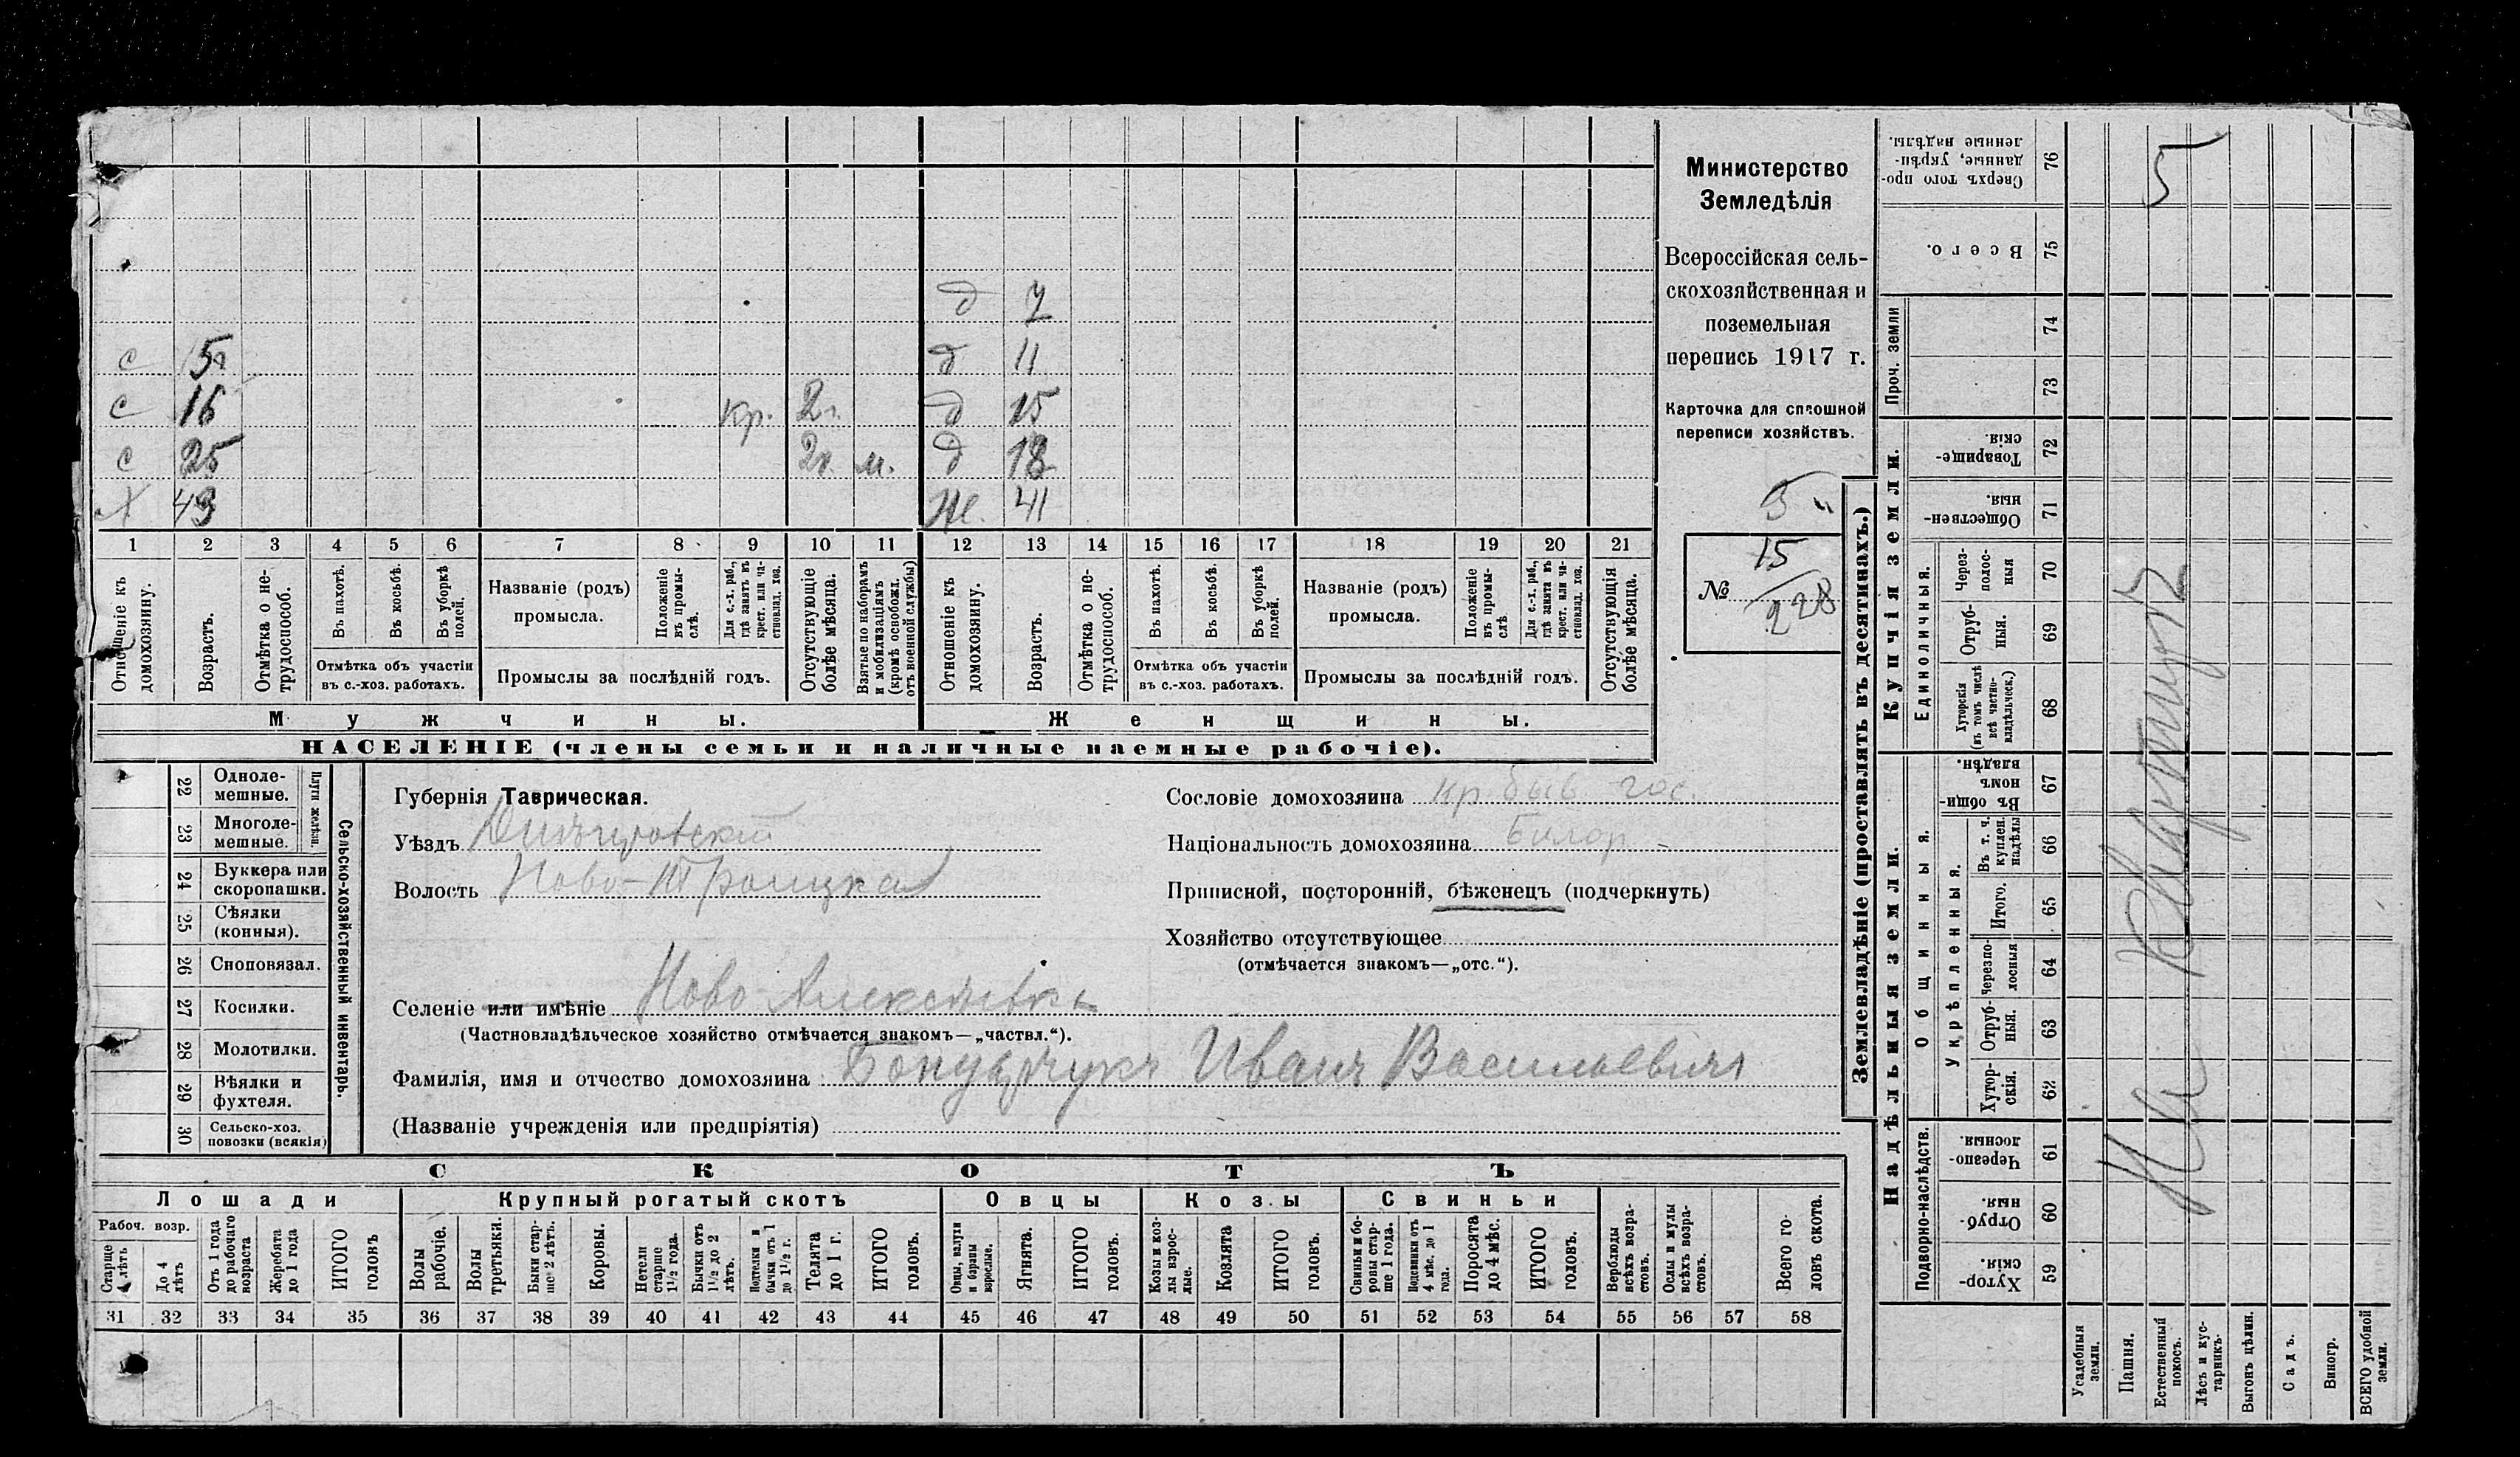 д 7
с 5г д 11
с 16 кр. 2г. д 15
с 25 2г. м. д 18
х 43 Ж. 41
1 2 3 4 5 6 7 8 9 10 11 12 13 14 15 16 17 18 19 20 21
Отношеніе къ домохозяину.
Возрастъ.
Отмѣтка о не-трудоспособ.
Въ пахотѣ.
Въ косьбѣ.
Въ уборкѣ полей.
Отмѣтка объ участіи
въ с.-хоз. работахъ.
Названіе (родъ)
промысла.
Положеніе въ промы-слѣ.
Для с.-х. раб., гдѣ занятъ въ крест. или ча-стновлад. хоз.
Промыслы за послѣдній годъ.
Отсутствующіе болѣе мѣсяца.
Взятые по наборамъ и мобилизаціямъ (кромѣ освобожд. отъ военной службы)
Отношеніе къ домохозяину.
Возрастъ.
Отмѣтка о не-трудоспособ.
Въ пахотѣ.
Въ косьбѣ.
Въ уборкѣ полей.
Отмѣтка объ участіи
въ с.-хоз. работахъ.
Названіе (родъ)
промысла.
Положеніе въ промы-слѣ
Для с.-х. раб., гдѣ занята въ крест. или ча-стновлад. хоз.
Промыслы за послѣдній годъ.
Отсутствующія болѣе мѣсяца.
Мужчины. Женщины.
НАСЕЛЕНІЕ (члены семьи и наличные наемные рабочіе).
Министерство
Земледѣлія
Всероссійская сель-
скохозяйственная и
поземельная
перепись 1917 г.
Карточка для сплошной
переписи хозяйствъ.
5
№ 15
228
22 Одноле-
мешные.
23 Многоле-
мешные.
Плуги желѣзн.
24 Буккера или
скоропашки.
25 Сѣялки
(конныя).
26 Сноповязал.
27 Косилки.
28 Молотилки.
29 Вѣялки и
фухтеля.
30 Сельско-хоз.
повозки (всякія)
Сельско-хозяйственный инвентарь.
Губернія Таврическая.
Уѣздъ Днѣпровскій
Волость Ново-Троицкая
Селеніе или имѣніе Ново Алексѣевка
(Частновладѣльческое хозяйство отмѣчается знакомъ—„частвл.“).
Фамилія, имя и отчество домохозяина Иванъ Васильевичъ
(Названіе учрежденія или предпріятія)
Сословіе домохозяина кр. быв. гос.
Національность домохозяина Бѣлор
Приписной, посторонній, бѣженецъ (подчеркнуть)
Хозяйство отсутствующее
(отмѣчается знакомъ—„отс.“).
СКОТЪ
Лошади Крупный рогатый скотъ Овцы Козы Свиньи
Рабоч. возр.
Старше 4 лѣтъ
До 4 лѣтъ
Отъ 1 года до рабочаго возраста
Жеребята до 1 года
ИТОГО головъ
Волы рабочіе.
Волы третьяки.
Быки стар-ше 2 лѣтъ.
Коровы.
Нетели старше 1½ года.
Бычки отъ 1½ до 2 лѣтъ.
Подтелки и бычки отъ 1 до 1½ г.
Телята до 1 г.
ИТОГО головъ.
Овцы, валухи и бараны взрослые.
Ягнята.
ИТОГО головъ.
Козы и коз-лы взрос-лые.
Козлята
ИТОГО головъ.
Свиньи и бо-ровы стар-ше 1 года.
Подсвинки отъ 4 мѣс. до 1 года.
Поросята до 4 мѣс.
ИТОГО головъ.
Верблюды всѣхъ возра-стовъ.
Ослы и мулы всѣхъ возра-стовъ.
Всего го-ловъ скота.
31 32 33 34 35 36 37 38 39 40 41 42 43 44 45 46 47 48 49 50 51 52 53 54 55 56 57 58
Землевладѣніе (проставлять въ десятинахъ.)
Надѣльныя земли. Купчія земли.
Подворно-наслѣдств.
Общинныя.
Укрѣпленныя.
Единоличныя.
Проч. земли
Сверхъ того про-
данные, укрѣп-
ленные надѣлы. 76
Всего. 75
74
73
Товарище-
скія. 72
Обществен-
ныя. 71
Через-
полос-
ныя 70
Отруб-
ныя. 69
Хуторскія
(въ томъ числѣ
всѣ частно-
владѣльческ.) 68
Въ общин-
номъ
владѣн. 67
Въ т. ч.
куплен.
надѣлы 66
Итого. 65
Черезпо-
лосныя 64
Отруб-
ныя. 63
Хутор-
скія. 62
Черезпо-
лосныя. 61
Отруб-
ныя. 60
Хутор-
скія. 59
Усадебныя земли.
Пашня.
Естественный покосъ.
Лѣсъ и кус-тарникъ.
Выгонъ цѣлин.
Садъ.
Виногр.
ВСЕГО удобной земли.
5
На квартирѣ